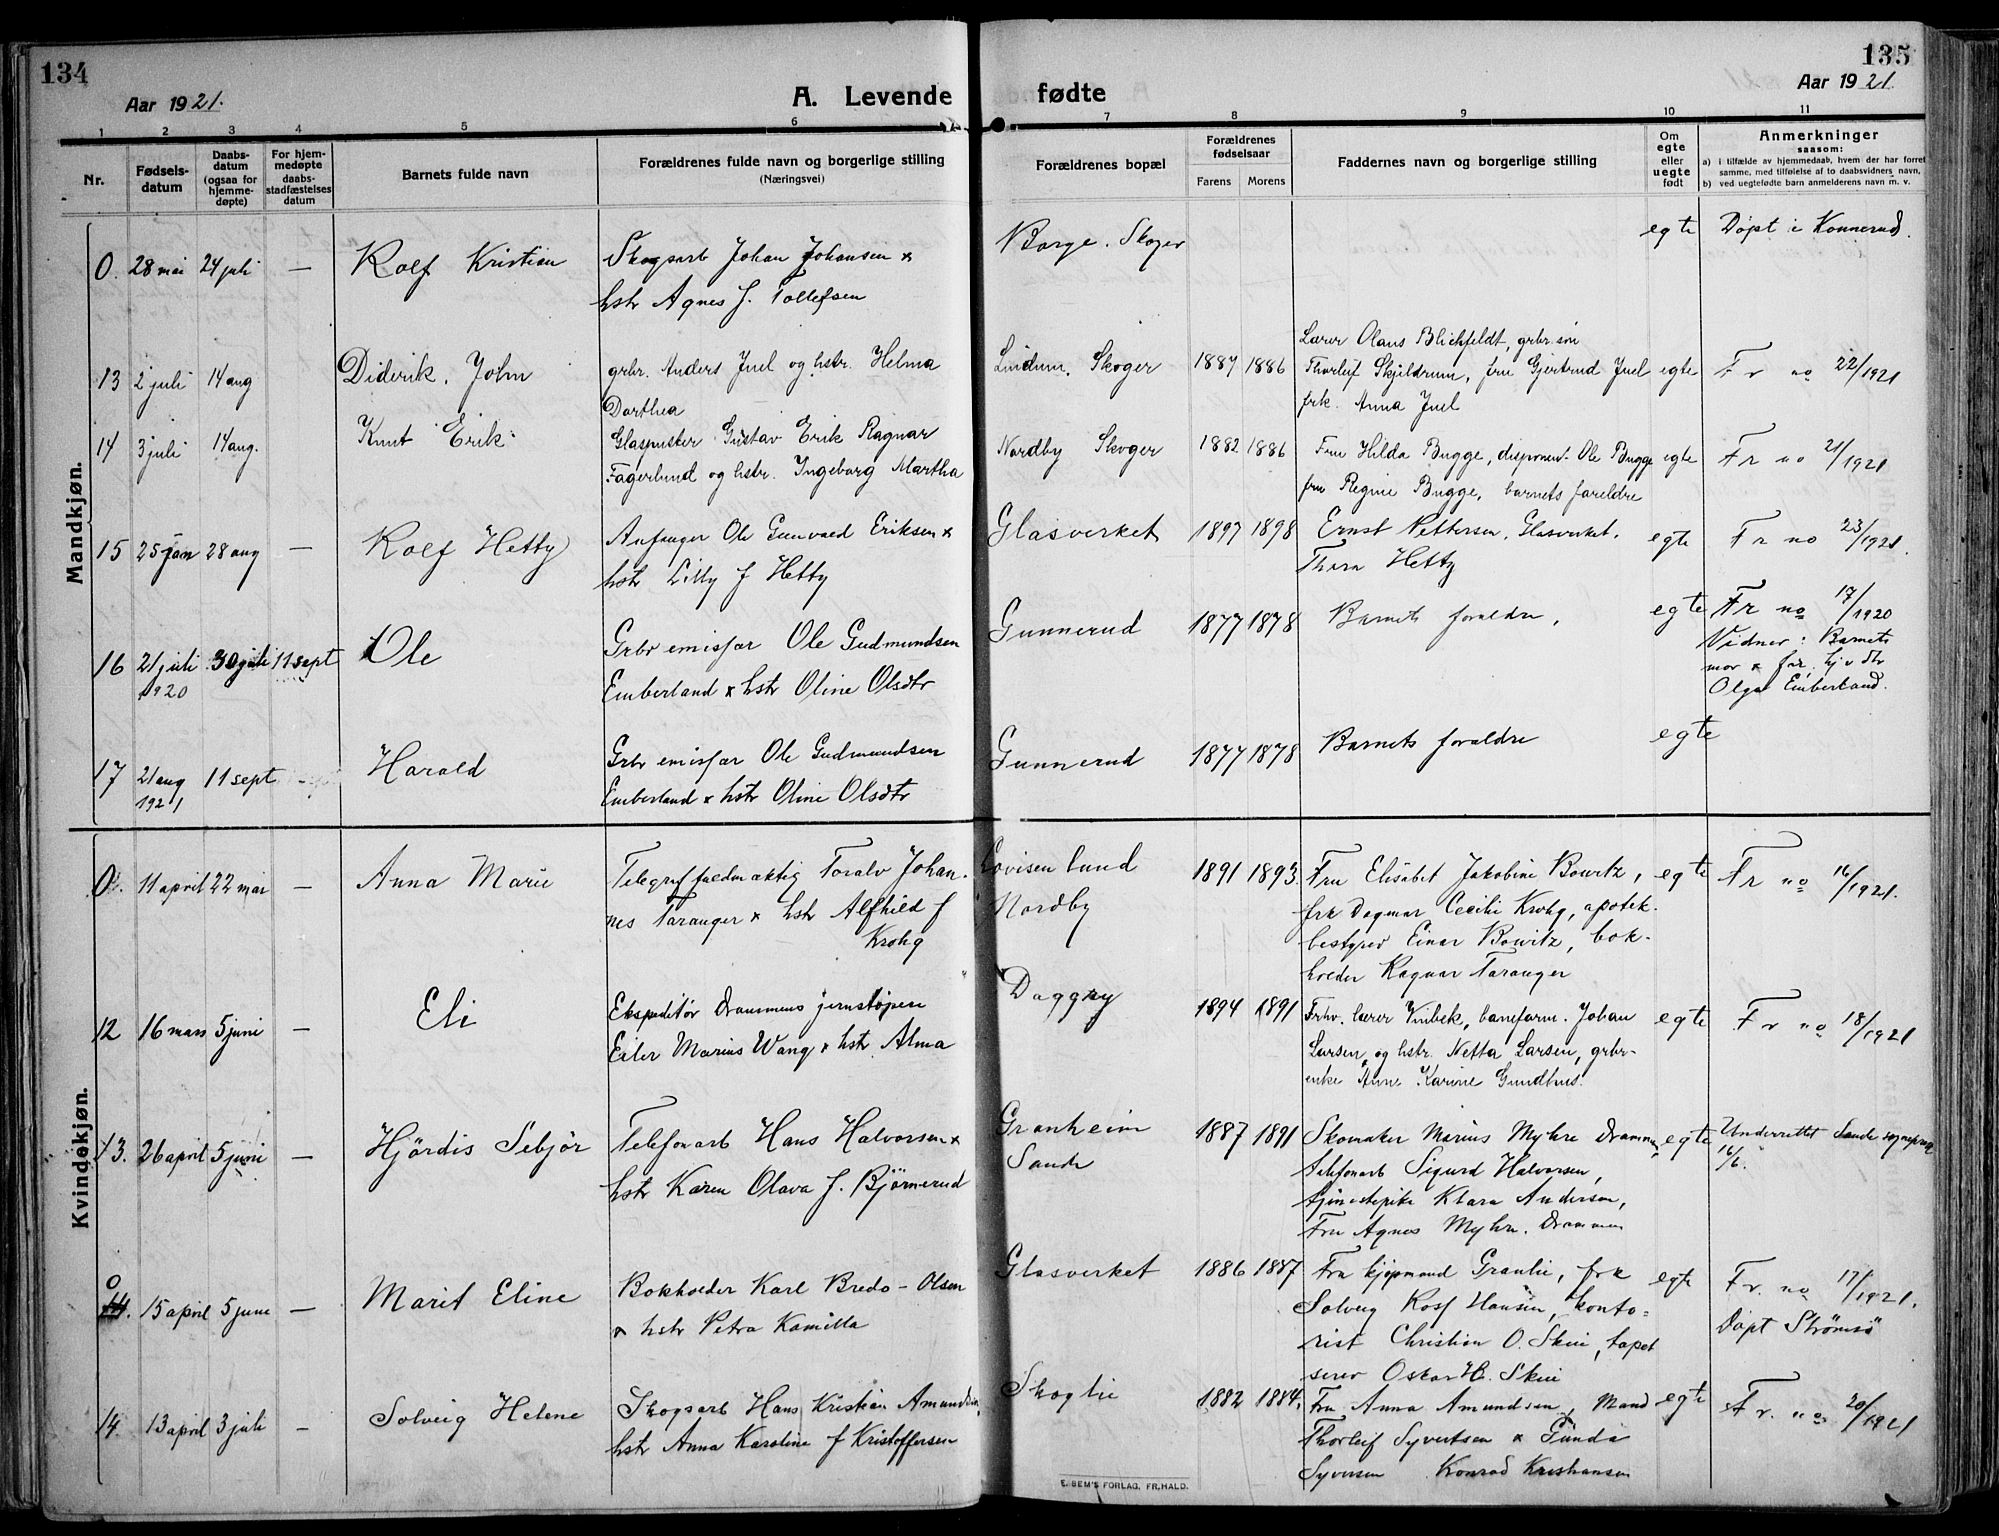 134
135
Aar 1921.
A. Levende fødte
Aar 1921
1 2 3 4 5 6 7 8 9 10 11
Nr.
Fødselsdatum
Daabsdatum (ogsaa for hjemmedøpte)
For hjemmedøpte daabsstadfæstelses datum
Barnets fulde navn
Forældrenes fulde navn og borgerlige stilling (Næringsvei)
Forældrenes bopæl
Forældrenes fødselsaar
Farens Morens
Faddernes navn og borgerlige stilling
Om egte eller uegte født
Anmerkninger
saasom:
a) i tilfælde av hjemmedaab, hvem der har forrettet samme, med tilføielse af to daabsvidners navn,
b) ved uegtefødte barn anmelderens navn m. v.
Mandkjøn.
0. 28 mai 24 juli — Rolf Kristian
Skogsarb Johan Johansen x
hstr Agnes f. Tollefsen
Borge. Skoger
egte
Døpt i Konnerud.
13 2 juli 14 aug Diderik. John
grbr. Anders Juel og hstr. Helma
Dorthea
Lindum. Skoger 1887 1886
Lærer Olaus Blichfeldt, grbr. søn
Thorleif Skjeldrum, fru Gjertrud Juel
frk. Anna Juel
egte
Fr no 22/1921
14 3 juli 14 aug. Knut Erik
Glaspuster Gustav Erik Ragnar
Fagerlund og hstr. Ingeborg Martha
Nordby Skoger 1882 1886
Fru Hilda Bugge, disponent Ole Bugge
fru Regine Bugge, barnets foreldre
egte
Fr no 21/1921
15 25 jan 28 aug — Rolf Hetty
Anfanger Ole Gunvald Eriksen x
hstr Lilly f Hetty
Glasverket 1897 1898
Ernst Pettersen, Glasverket.
Thora Hetty
egte
Fr no 23/1921.
16 21 juli 1920 30 juli 11 sept Ole
Grbr emisfær Ole Gudmundsen
Emberland x hstr Oline Olsdtr
Gunnerud 1877 1878
Barnets foraldre,
egte
Fr no 17/1920
Vidner: Barnets
mor x far. hj v dtr
Olga Emberland.
17 21 aug 1921 11 sept — Harald
Grbr emisfær Ole Gudmundsen
Emberland x hstr Oline Olsdtr
Gunnerud 1877 1878
Barnets foraldre
egte
Kvindekjøn.
0. 11 april 22 mai — Anna Marie
Telegraffuldmæktig Toralv Johan-
nes Taranger x hstr Alfhild f
Krohg
Lovisenlund
Nordby
1891 1893
Fru Elisabet Jakobine Bowitz,
frk Dagmar Cecilie Krohg, apotek-
bestyrer Einar Bowitz, bok-
holder Ragnar Taranger
egte
Fr no 16/1921.
12 16 mars 5 juni — Eli
Ekspeditør Drammens jernstøperi
Eiler Marius Wang x hstr Alma
Daggry 1894 1891
Frhv. lærer Vinbek, baneform. Johan
Larsen, og hstr. Netta Larsen, grbr-
enke Anne Karine Gundhus.
egte
Fr no 18/1921
13. 26 april 5 juni — Hjørdis Sebjør
Telefonarb Hans Halvorsen x
hstr Karen Olava f. Bjørnerud
Granheim
Sande
1887 1891
Skomaker Marius Myhre Drammen,
telefonarb Sigurd Halvorsen,
tjenestepike Klara Andersen,
Fru Agnes Myhre. Drammen
egte
Underrettet Sande sogneprest
16/6.
0 14. 15 april 5 june — Marit Eline
Bokholder Karl Bredo-Olsen
x hstr Petra Kamilla
Glasverket 1886 1887
Fru kjøpmand Granlie, frk
Solveig Rosf Hansen, konto-
rist Christian O. Skui, tapet
serer Oskar H. Skui
egte
Fr. no 17/1921.
Døpt Strømsø
14 13 april 3 juli — Solveig Helene
Skogsarb Hans Kristian Amundsen,
hstr Anna Karoline f Kristoffersen
Skoglie 1882 1884.
Fru Anna Amundsen, Mand
Thorleif Syvertsen x Gunda
Syversen Konrad Kristiansen
egte
Fr. no 20/1921
E. SEM'S FORLAG, FR.HALD.